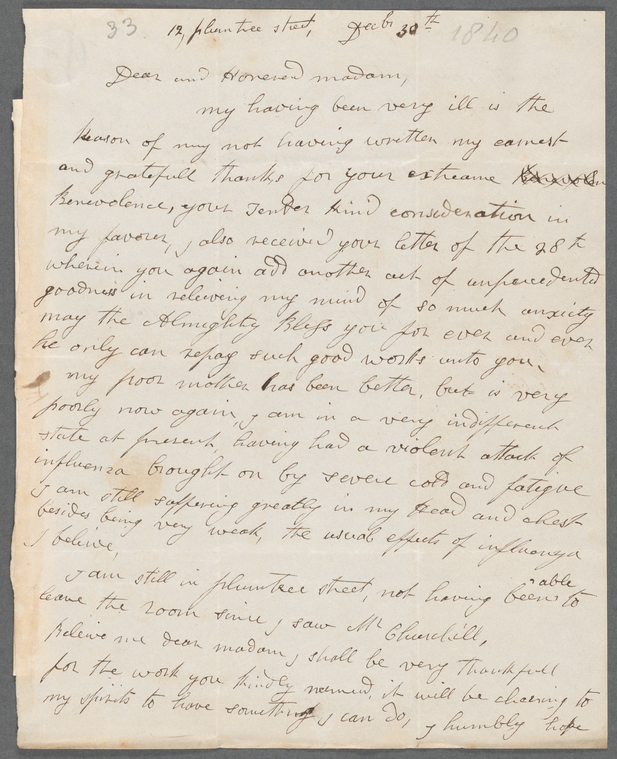 33 12, plumtree street, Decbr 30th 1840
Dear and Honered madam,
my having been very ill is the
Reason of my not having written my earnest
and gratefull thanks for your extreame
Benevolence, your Tender Kind consideration in
my favour, j also received your letter of the 28th
wherein you again add another act of unprecedented
goodness in releiving my mind of so much anxiety
may the Almighty Bless you for ever and ever
he only can repay such good works unto you.
my poor mother has been better, but is very
poorly now again, j am in a very indifferent
state at present, having had a violent attack of
influenza brought on by severe cold and fatigue
j am still suffering greatly in my Head and chest
besides being very weak, the usual effects of influenza
j believe,
j am still in plumtree street, not having been able to
leave the room since j saw Mr Churchill,
Beleive me dear madam, j shall be very thankfull
for the work you kindly named, it will be chearing to
my spirits to have something j can do, j humbly hope